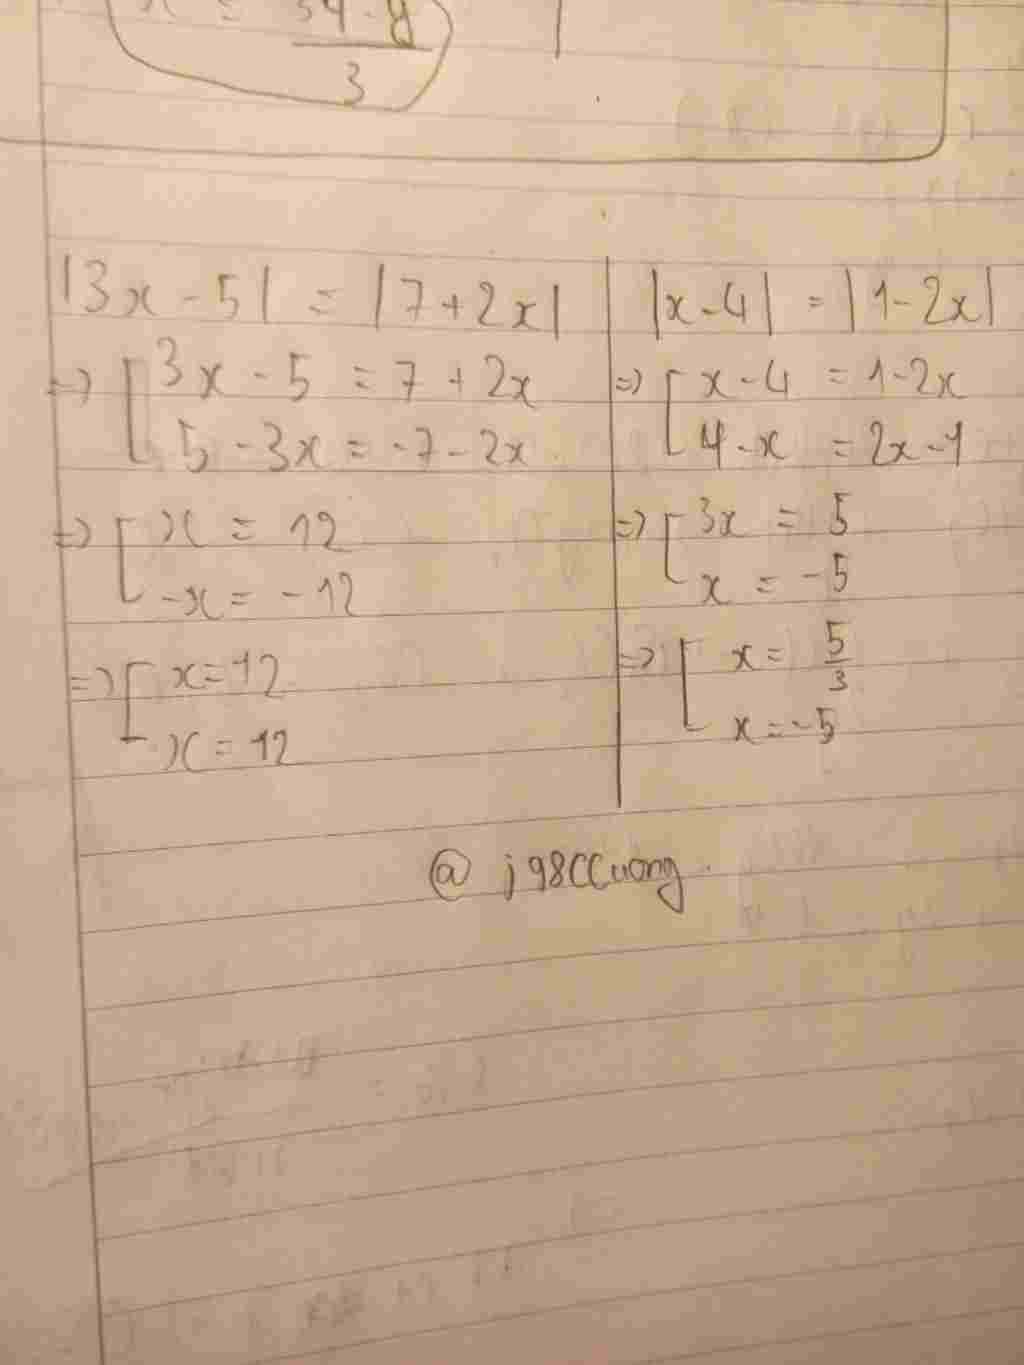 x = 34 - y
3
|3x - 5| = |7 + 2x|
=> [ 3x - 5 = 7 + 2x
5 - 3x = -7 - 2x
=> [ x = 12
-x = -12
=> [ x = 12
x = 12
|x - 4| = |1 - 2x|
=> [ x - 4 = 1 - 2x
4 - x = 2x - 1
=> [ 3x = 5
x = -5
=> [ x = 5/3
x = -5
@ j98CCuong.